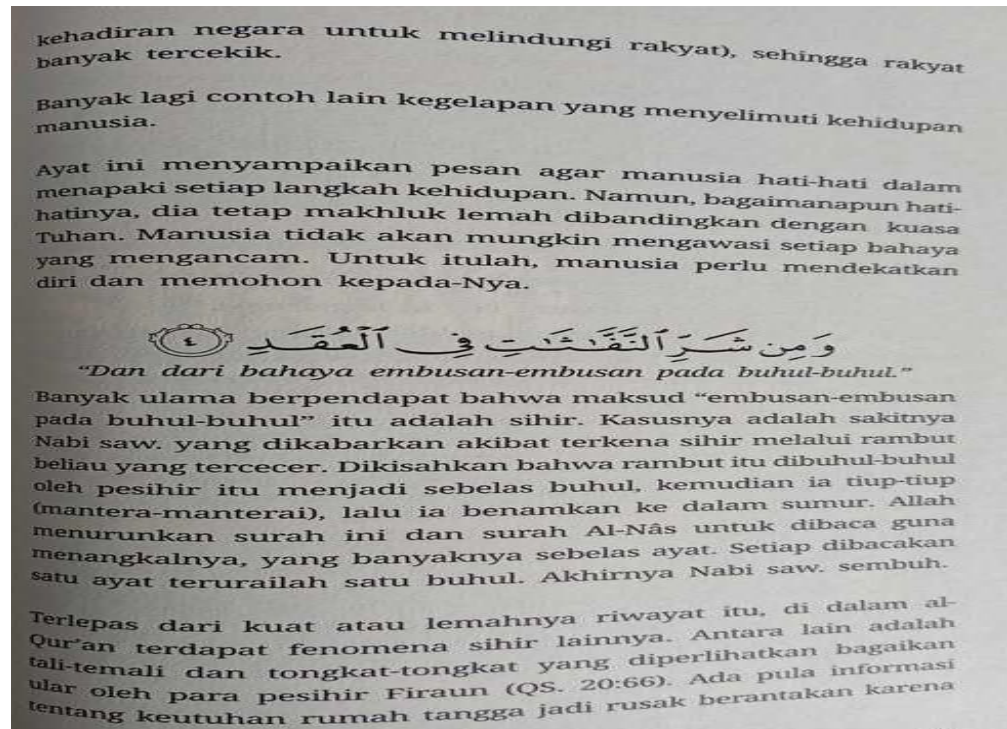 kehadiran negara untuk melindungi rakyat), sehingga rakyat
banyak tercekik.
Banyak lagi contoh lain kegelapan yang menyelimuti kehidupan
manusia.
Ayat ini menyampaikan pesan agar manusia hati-hati dalam
menapaki setiap langkah kehidupan. Namun, bagaimanapun hati-
hatinya, dia tetap makhluk lemah dibandingkan dengan kuasa
Tuhan. Manusia tidak akan mungkin mengawasi setiap bahaya
yang mengancam. Untuk itulah, manusia perlu mendekatkan
diri dan memohon kepada-Nya.
وَمِن شَرِّ ٱلنَّفَّٰثَٰتِ فِى ٱلْعُقَدِ ٤
“Dan dari bahaya embusan-embusan pada buhul-buhul.”
Banyak ulama berpendapat bahwa maksud “embusan-embusan
pada buhul-buhul” itu adalah sihir. Kasusnya adalah sakitnya
Nabi saw. yang dikabarkan akibat terkena sihir melalui rambut
beliau yang tercecer. Dikisahkan bahwa rambut itu dibuhul-buhul
oleh pesihir itu menjadi sebelas buhul, kemudian ia tiup-tiup
(mantera-manterai), lalu ia benamkan ke dalam sumur. Allah
menurunkan surah ini dan surah Al-Nâs untuk dibaca guna
menangkalnya, yang banyaknya sebelas ayat. Setiap dibacakan
satu ayat terurailah satu buhul. Akhirnya Nabi saw. sembuh.
Terlepas dari kuat atau lemahnya riwayat itu, di dalam al-
Qur’an terdapat fenomena sihir lainnya. Antara lain adalah
tali-temali dan tongkat-tongkat yang diperlihatkan bagaikan
ular oleh para pesihir Firaun (QS. 20:66). Ada pula informasi
tentang keutuhan rumah tangga jadi rusak berantakan karena